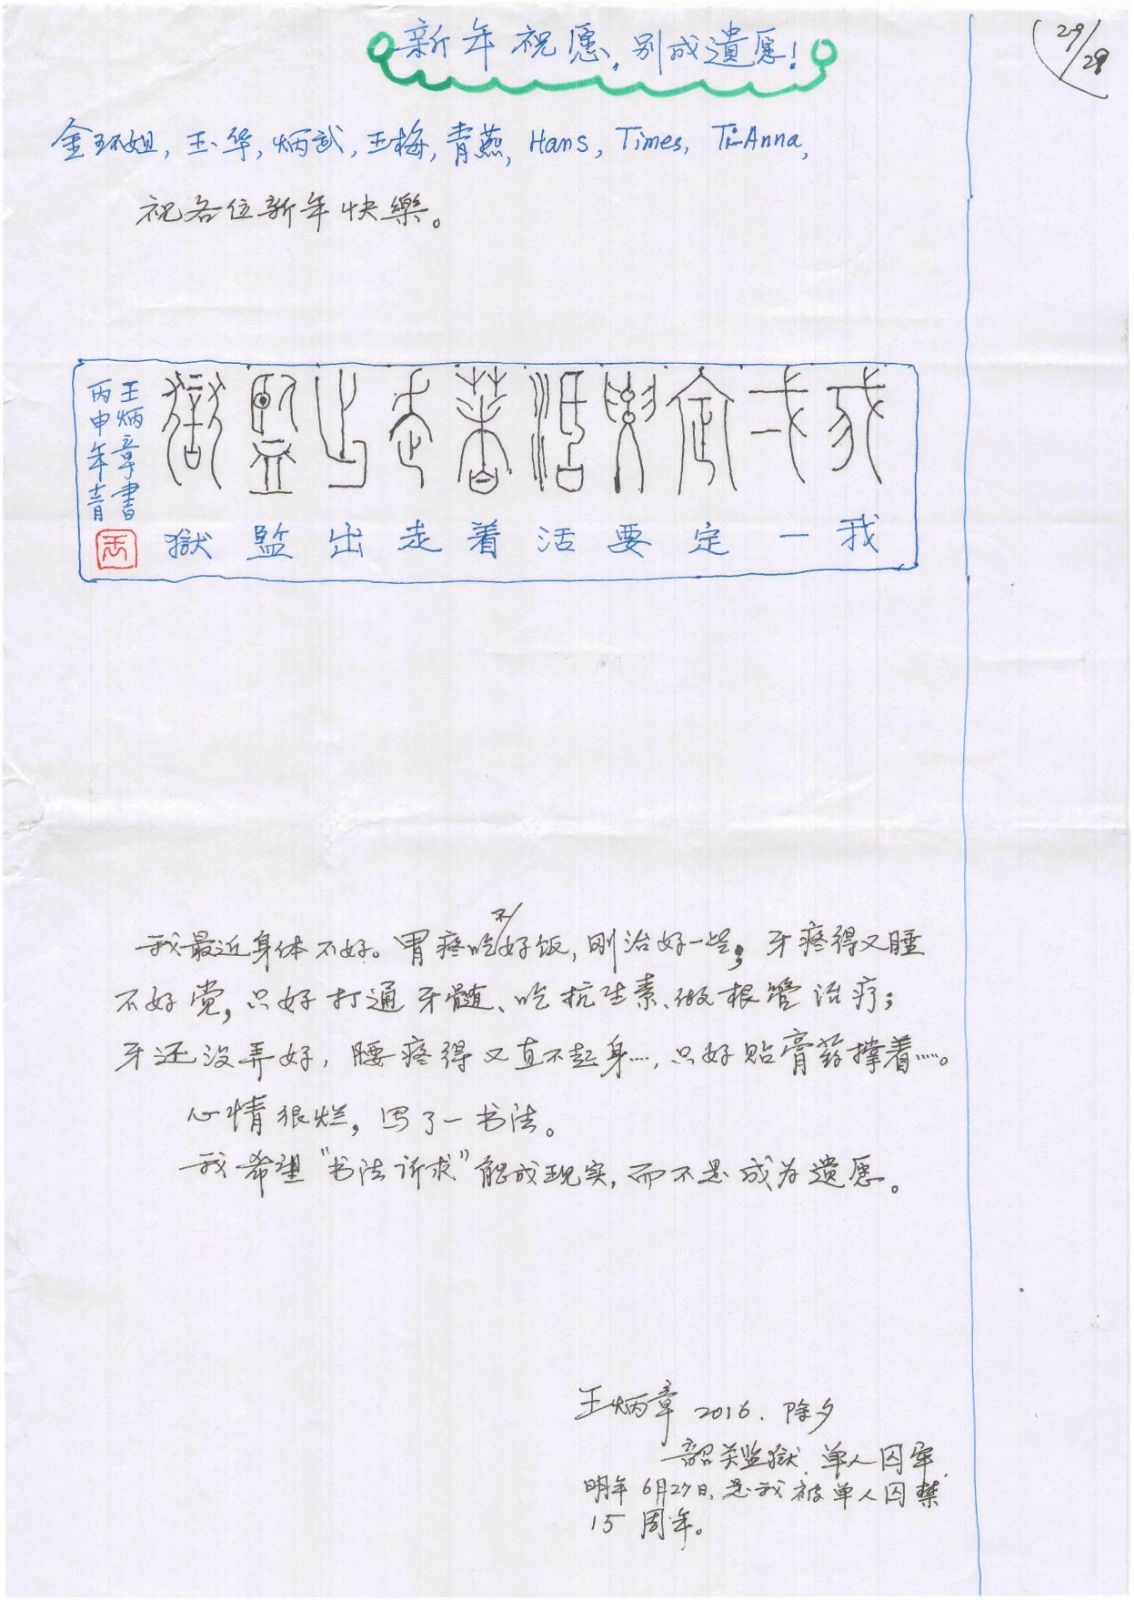 新年祝愿,别成遺愿!
29/29
金环姐,玉华,炳武,玉梅,青燕,Hans,Times,Ti-Anna,
祝各位新年快樂。
我一定要活着走出監獄
我一定要活着走出監獄
王炳章書
丙申年十二月
王
我最近身体不好。胃疼吃不好饭,刚治好一些,牙疼得又睡
不好觉,只好打通牙髓、吃抗生素、做根管治疗;
牙还没弄好,腰疼得又直不起身……,只好贴膏药撑着……。
心情很烂,写了一书法。
我希望“书法诉求”能成现实,而不是成为遗愿。
王炳章 2016.除夕
韶关监獄.单人囚牢.
明年6月27日,是我被单人囚禁
15周年。